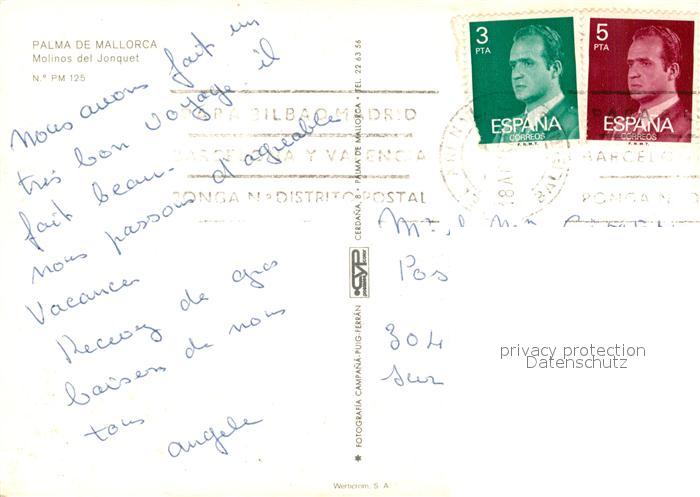 PALMA DE MALLORCA
Molinos del Jonquet
N.º PM 125
Nous avons fait un
très bon voyage. il
fait beau.
nous passons d'agreable
Vacances
Recevez de gros
baisers de nous
tous
angele
FOTOGRAFIA CAMPAÑA-PUIG-FERRÁN
CYP
CERDAÑA, 8 - PALMA DE MALLORCA - TEL. 22 63 56
Werticrom, S. A.
3
PTA
ESPAÑA
CORREOS
F.N.M.T.
5
PTA
ESPAÑA
CORREOS
F.N.M.T.
BILBAO MADRID
Y VALENCIA
PONGA Nº DISTRITO POSTAL
BARCELO
PONGA N
Pos
304
sur
privacy protection
Datenschutz